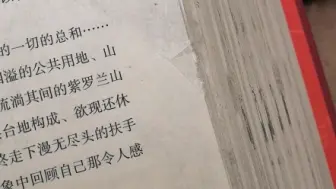 的一切的总和……
溢的公共用地、山
流淌其间的紫罗兰山
台地构成、欲现还休
走下漫无尽头的扶手
象中回顾自己那令人感